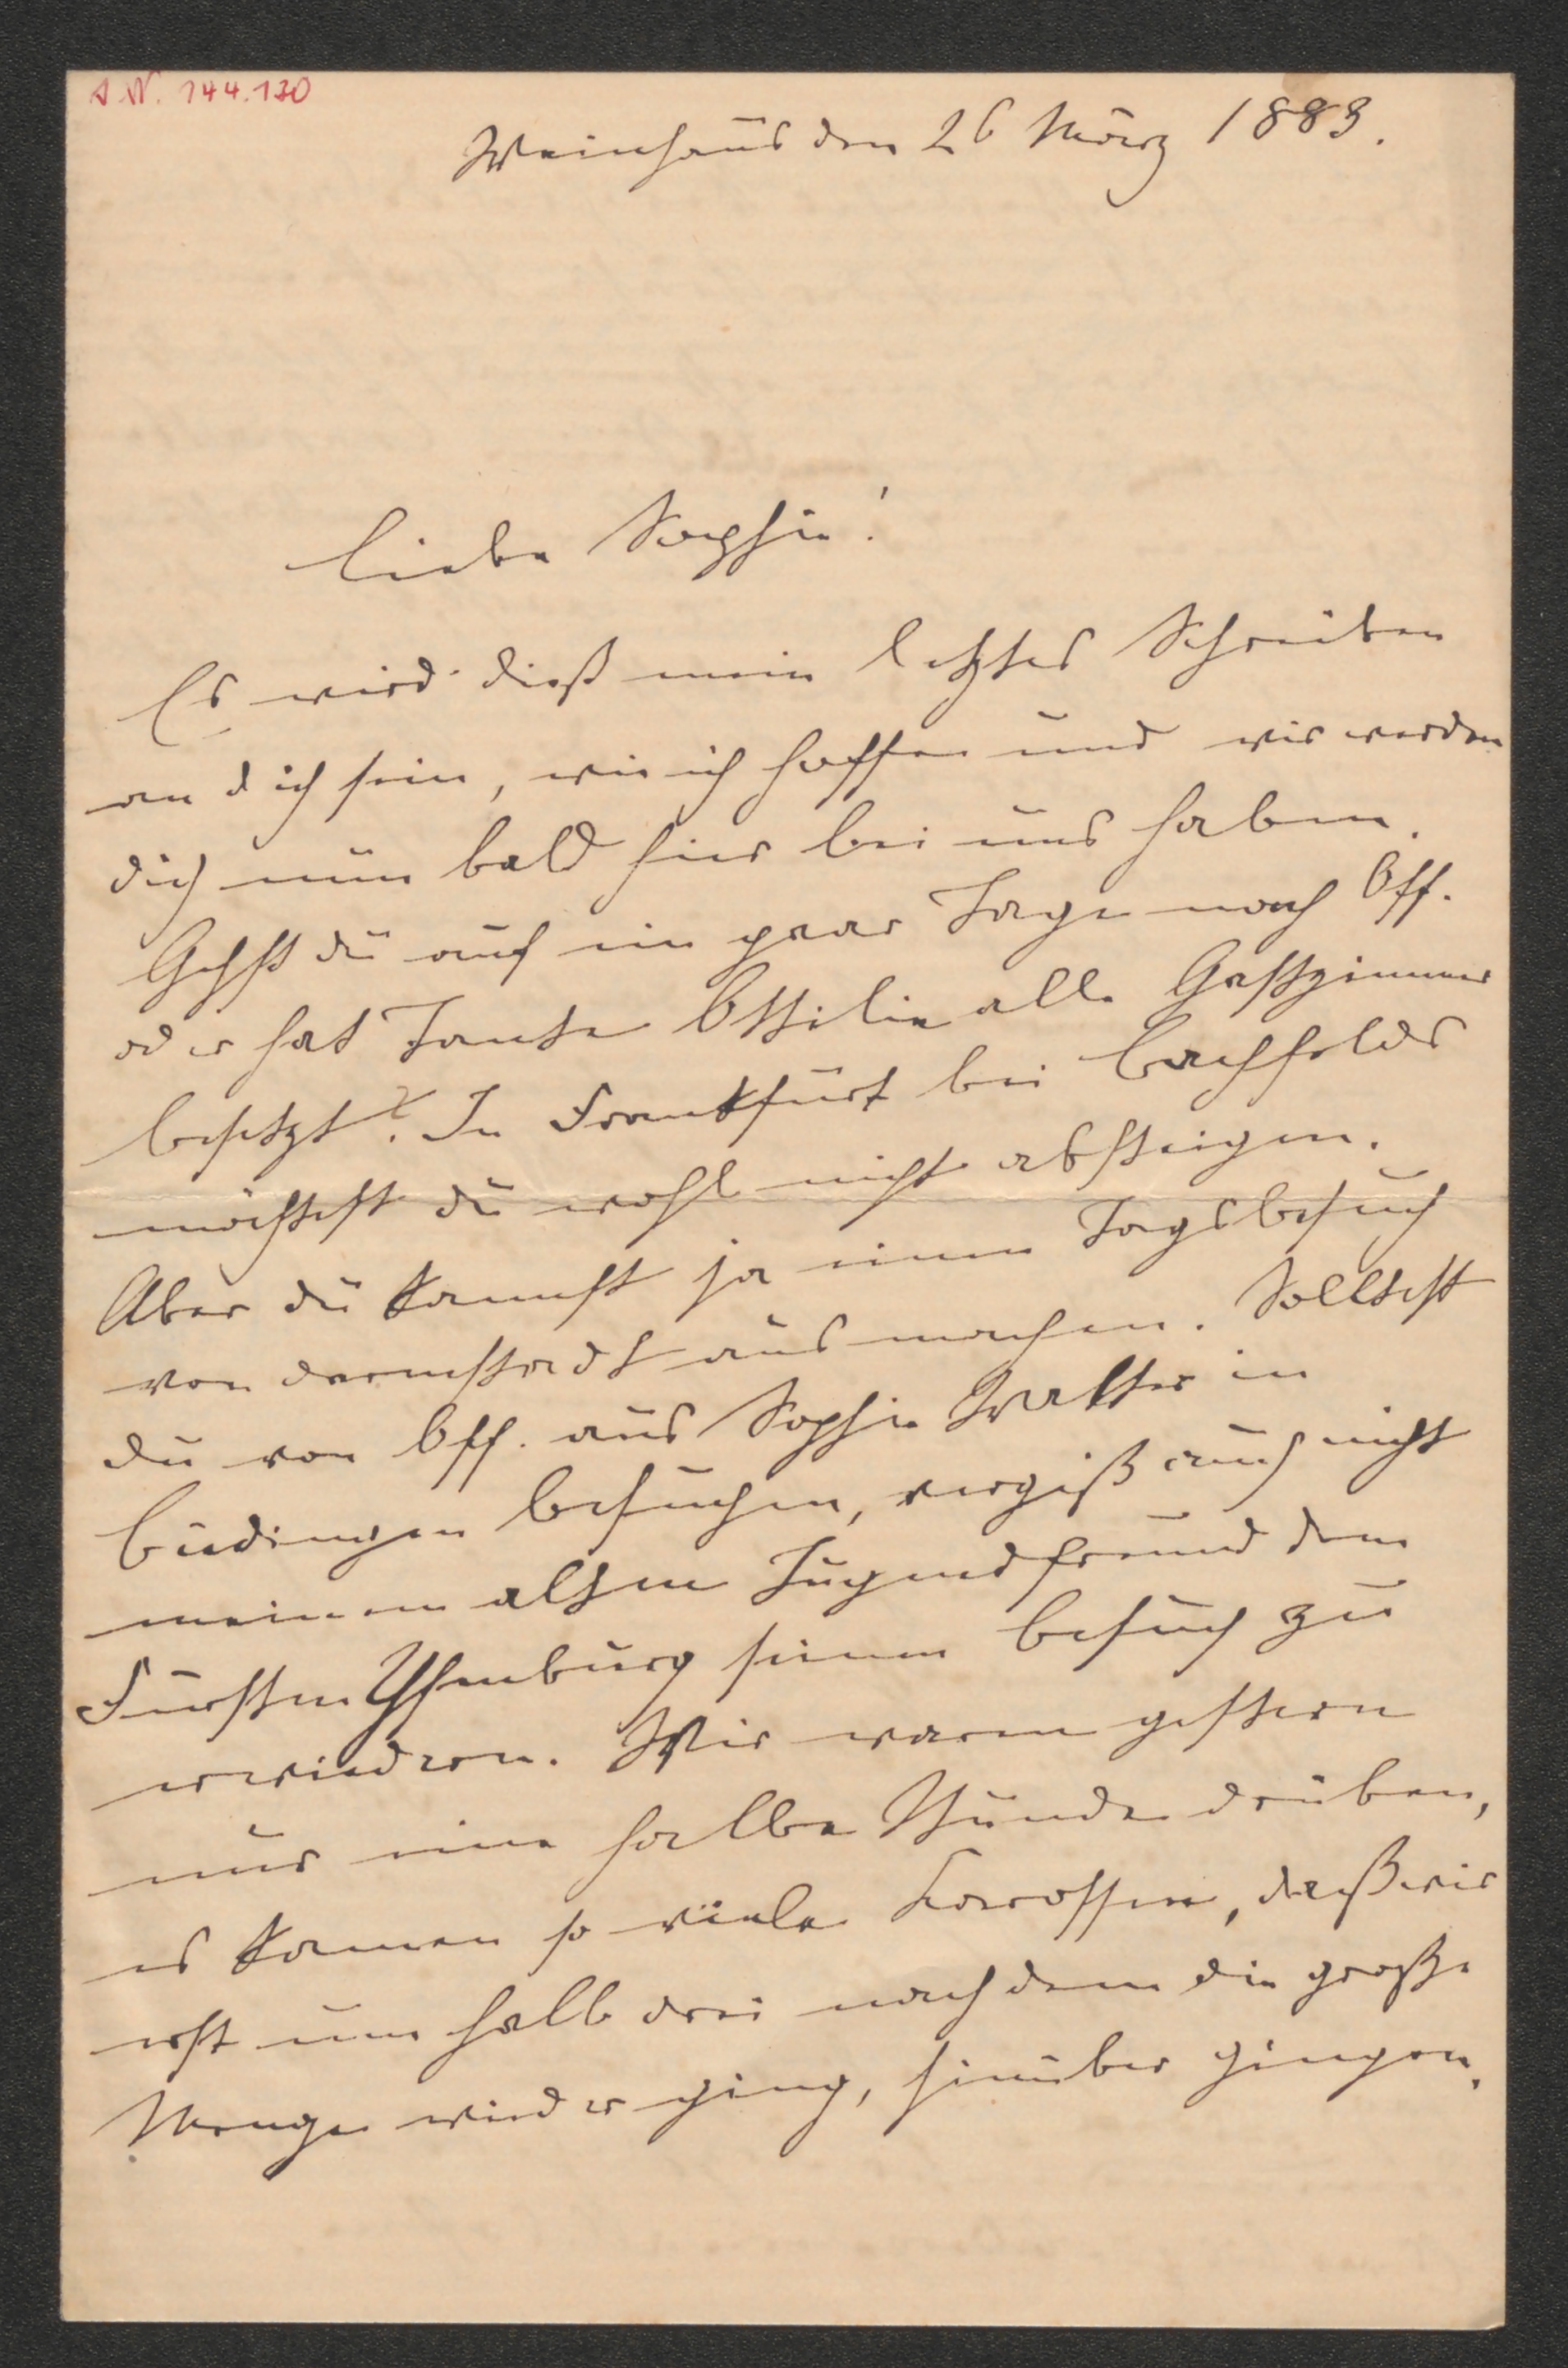 A. N. 144.130
Weinhaus den 26 März 1883.
Liebe Sophie!
Es wird dieß mein letztes Schreiben
an dich sein, wie ich hoffe und wir werden
dich nun bald hier bei uns haben.
Gehst du auf ein paar Tage nach Off.
oder hat Tante Ottilie alle Gastzimmer
besetzt? In Frankfurt bei
möchtest du wohl nicht absteigen.
Aber du kannst ja einen Tagsbesuch
von darmstadt aus machen. Solltest
du von Off. aus Sophie Walther in
Büdingen besuchen, vergiß auch nicht
meinem alten Jugendfreund dem
Fürsten Ysenburg seinen Besuch zu
erwiedern. Wir waren gestern
nur eine halbe Stunde drüben,
es kamen so viele Karossen, daß wir
erst um halb drei nachdem die große
Menge wieder ging, hinüber gingen.